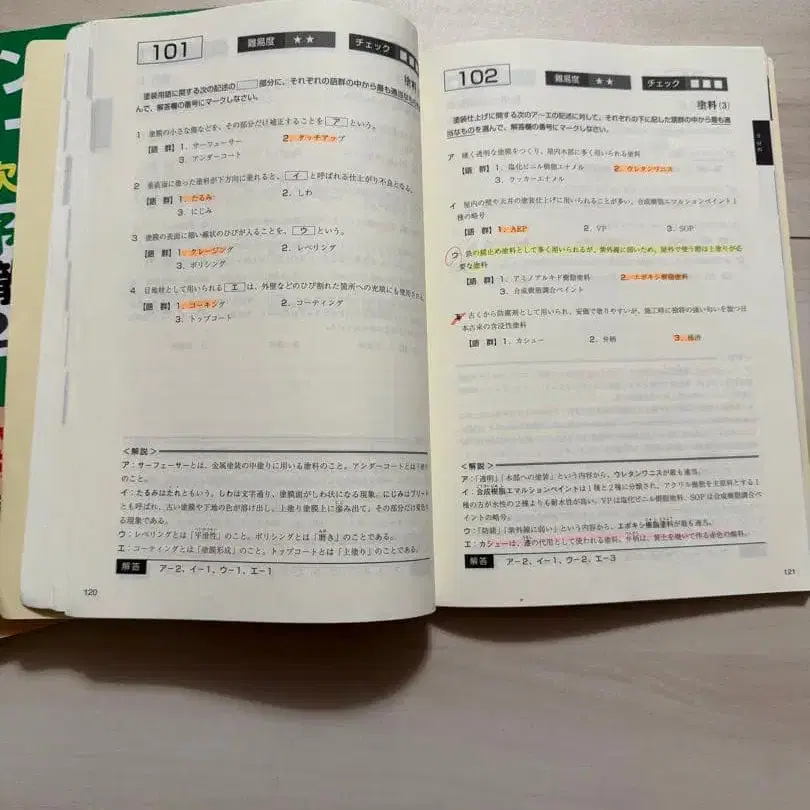 101
難易度 ★★
チェック
塗料
塗装用語に関する次の記述の 部分に、それぞれの語群の中から最も適
んで、解答欄の番号にマークしなさい。
1 塗膜の小さな傷などを、その部分だけ補正することを ア という。
【語 群】 1. サーフェーサー 2. タッチアップ
3. アンダーコート
2 垂直面に塗った塗料が下方向に垂れると、 イ と呼ばれる仕上がり不良となる。
【語 群】 1. たるみ 2. しわ
3. にじみ
3 塗膜の表面に細い線状のひびが入ることを、 ウ という。
【語 群】 1. クレージング 2. レベリング
3. ポリシング
4 目地材として用いられる エ は、外壁などのひび割れた箇所への充填にも使用される。
【語 群】 1. コーキング 2. コーティング
3. トップコート
＜解説＞
ア：サーフェーサーとは、金属塗装の中塗りに用いる塗料のこと。アンダーコートとは
のこと。
イ：たるみはたれともいう。しわは文字通り、塗膜面がしわ状になる現象。にじみはブリード
とも呼ばれ、古い塗膜や下地の色が溶け出し、上塗り塗膜上に滲み出て、その部分だけ変色す
る現象である。
ウ：レベリングとは「平滑性」のこと。ポリシングとは「磨き」のことである。
エ：コーティングとは「塗膜形成」のこと。トップコートとは「上塗り」のことである。
解答 ア－2、イ－1、ウ－1、エ－1
120
102
難易度 ★★
チェック
塗料(3)
塗装仕上げに関する次のア～エの記述に対して、それぞれの下に記した語群の中から最も適
当なものを選んで、解答欄の番号にマークしなさい。
ア 硬く透明な塗膜をつくり、屋内木部に多く用いられる塗料
【語 群】 1. 塩化ビニル樹脂エナメル 2. ウレタンワニス
3. ラッカーエナメル
イ 屋内の壁や天井の塗装仕上げに用いられることが多い、合成樹脂エマルションペイント1
種の略号
【語 群】 1. AEP 2. VP 3. SOP
ウ 鉄の錆止め塗料として多く用いられるが、紫外線に弱いため、屋外で使う際は上塗りが必
要な塗料
【語 群】 1. アミノアルキド樹脂塗料 2. エポキシ樹脂塗料
3. 合成樹脂調合ペイント
エ 古くから防腐剤として用いられ、安価で塗りやすいが、施工時に独特の強い匂いを放つ日
本古来の含浸性塗料
【語 群】 1. カシュー 2. 弁柄 3. 柿渋
＜解説＞
ア：「透明」「木部への塗装」という内容から、ウレタンワニスが最も適当。
イ：合成樹脂エマルションペイントは1種と2種に分類され、アクリル樹脂を主原料とする1
種の方が水性の2種よりも耐水性が高い。VPは塩化ビニル樹脂塗料、SOPは合成樹脂調合ペ
イントの略号。
ウ：「防錆」「紫外線に弱い」という内容から、エポキシ樹脂塗料が最も適当。
エ：カシューは、漆の代用として使われる塗料。弁柄は、黄土を焼いて作る赤色の顔料。
解答 ア－2、イ－1、ウ－2、エ－3
121